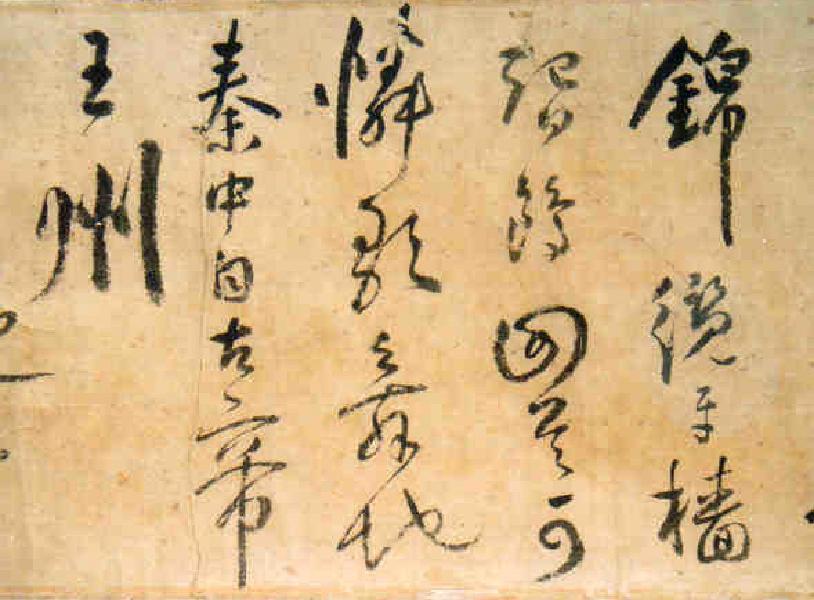 錦纜牙檣
起白鷗回首可
憐歌舞地
秦中自古帝
王州